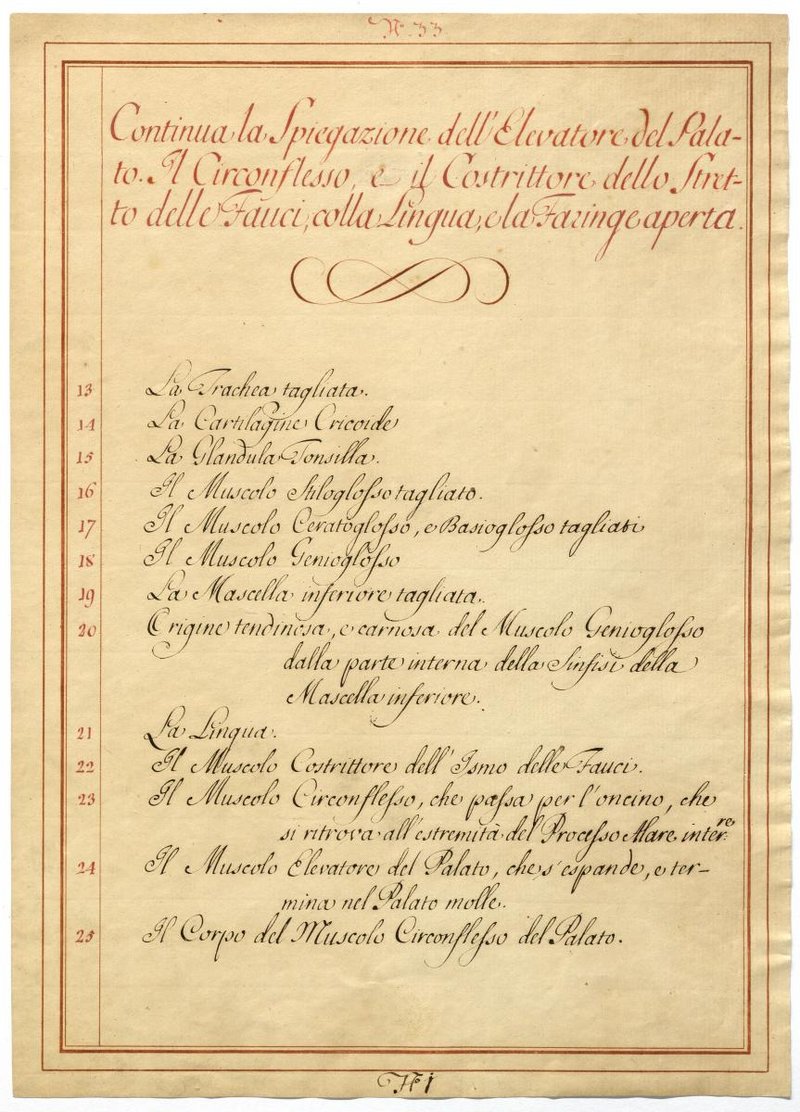 N.° 33
Continua la Spiegazione dell'Elevatore del Pala-
to. Il Circonflesso, e il Costrittore dello Stret-
to delle Fauci, colla Lingua, e la Faringe aperta.
13 La Trachea tagliata.
14 La Cartilagine Cricoide
15 La Glandula Tonsilla.
16 Il Muscolo Stiloglosso tagliato.
17 Il Muscolo Ceratoglosso, e Basioglosso tagliati
18 Il Muscolo Genioglosso
19 La Mascella inferiore tagliata.
20 Origine tendinosa, e carnosa del Muscolo Genioglosso
dalla parte interna della Sinfisi della
Mascella inferiore.
21 La Lingua.
22 Il Muscolo Costrittore dell'Ismo delle Fauci.
23 Il Muscolo Circonflesso, che passa per l'oncino, che
si ritrova all'estremità del Processo Alare inter:re
24 Il Muscolo Elevatore del Palato, che s'espande, e ter-
mina nel Palato molle.
25 Il Corpo del Muscolo Circonflesso del Palato.